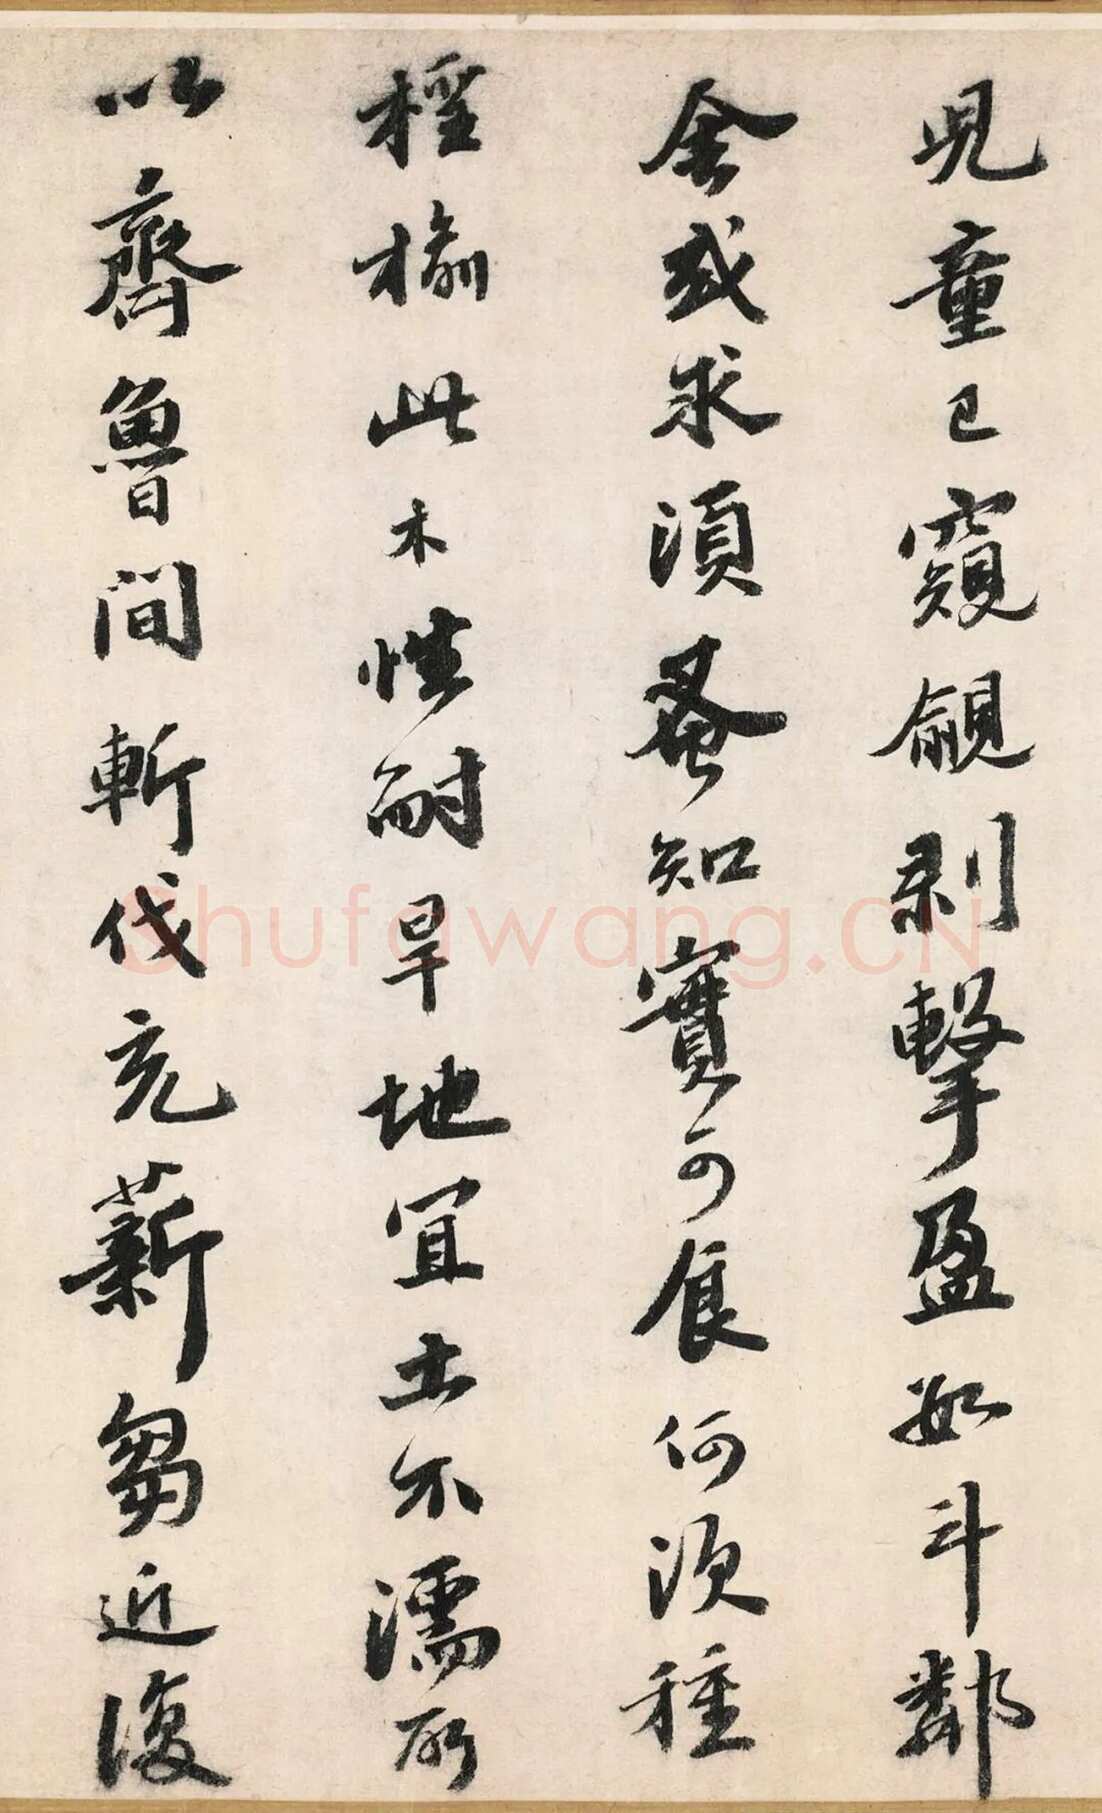 兒童已窺覦剥擊盈數斗鄰
舍或求須蚤知實可食何須種
桎榆此木性耐旱地宜土不濡所
以齊魯間斬伐充薪芻近復
Shufawang.CN